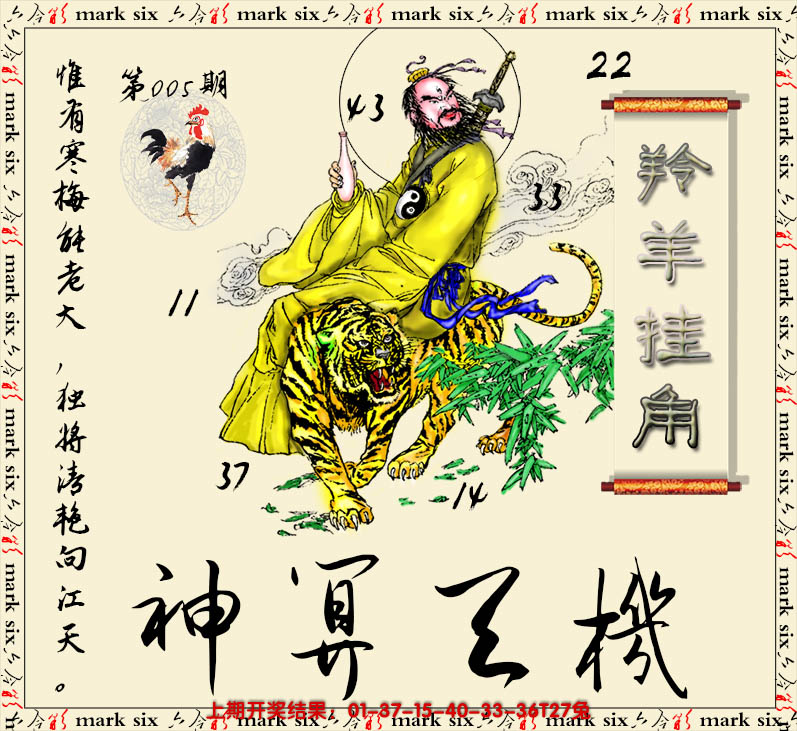 mark six 六合彩 mark six 六合彩 mark six 六合彩 mark six 六合彩 mark six
第005期
惟有寒梅能老大，独将清艳向江天。
22
43
33
11
37
14
羚羊挂角
神算天機
上期开奖结果：01-37-15-40-33-36T27兔
mark six 六合彩 mark six 六合彩 mark six 六合彩 mark six 六合彩 mark six